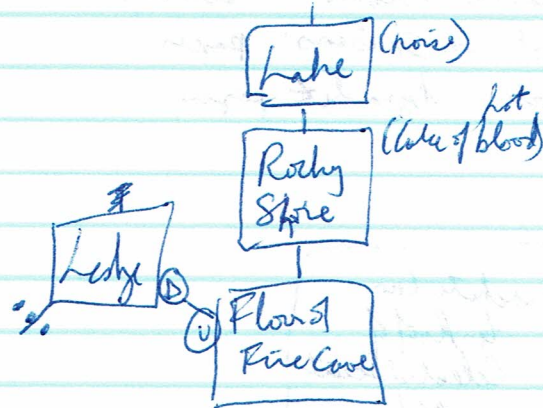 Lake (noise)
hot
(Lake of blood)
Rocky
Shore
Ledge
D
U
Floor of
Fire Cave